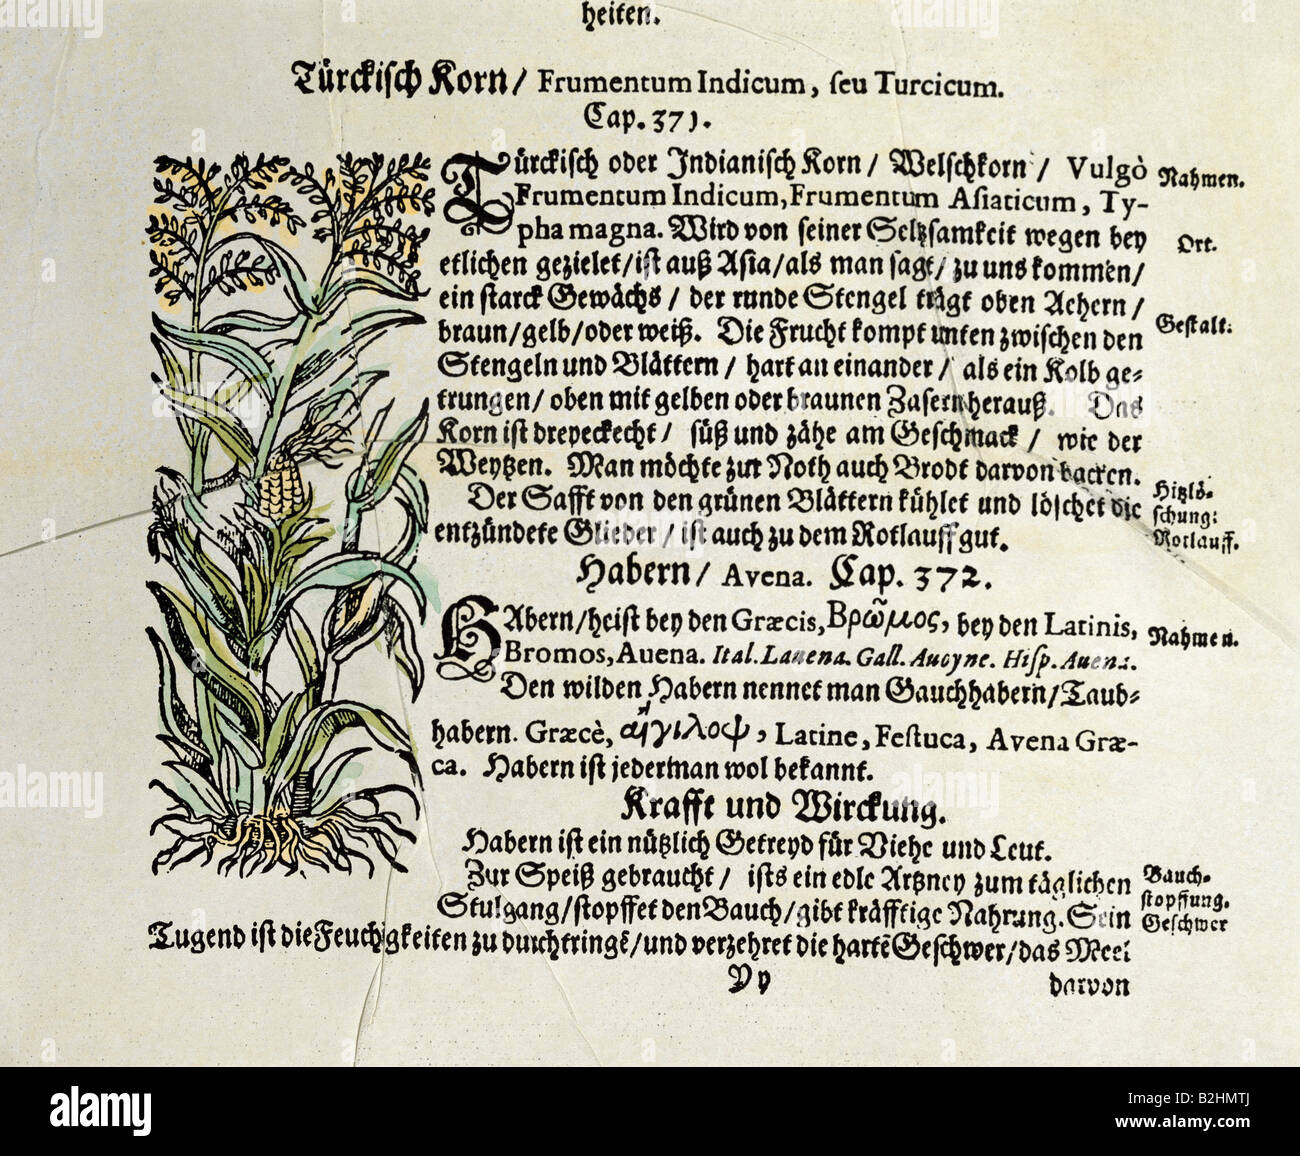 heiten.
Türckisch Korn/ Frumentum Indicum, seu Turcicum.
Cap. 371.
Türckisch oder Indianisch Korn/ Welschkorn/ Vulgò
Frumentum Indicum, Frumentum Asiaticum, Ty-
pha magna. Wird von seiner Seltzsamkeit wegen bey
etlichen gezielet/ ist auß Asia/ als man sagt/ zu uns kommen/
ein starck Gewächs/ der runde Stengel trägt oben Aehern/
braun/ gelb/ oder weiß. Die Frucht kompt unten zwischen den
Stengeln und Blättern/ hart an einander/ als ein Kolb ge-
trungen/ oben mit gelben oder braunen Zasern herauß. Das
Korn ist dreyeckecht/ süß und zähe am Geschmack/ wie der
Weytzen. Man möchte zur Noth auch Brodt darvon backen.
Der Safft von den grünen Blättern kühlet und löschet die
entzündete Glieder/ ist auch zu dem Rotlauff gut.
Nahmen.
Ort.
Gestalt:
Hitzlö-
schung:
Rotlauff.
Habern/ Avena. Cap. 372.
HAbern/ heist bey den Græcis, Βρῶμος, bey den Latinis,
Bromos, Auena. Ital. Lauena. Gall. Auoyne. Hisp. Auena.
Den wilden Habern nennet man Gauchhabern/ Taub-
habern. Græcè, αἰγιλοψ, Latine, Festuca, Avena Græ-
ca. Habern ist jederman wol bekannt.
Nahmen.
Krafft und Wirckung.
Habern ist ein nützlich Getreyd für Viehe und Leut.
Zur Speiß gebraucht/ ists ein edle Artzney zum täglichen
Stulgang/ stopffet den Bauch/ gibt kräfftige Nahrung. Sein
Tugend ist die Feuchtigkeiten zu durchtringẽ/ und verzehret die hartẽ Geschwer/ das Meel
Bauch-
stopffung.
Geschwer
Yy
darvon
alamy
Image ID: B2HMTJ
www.alamy.com